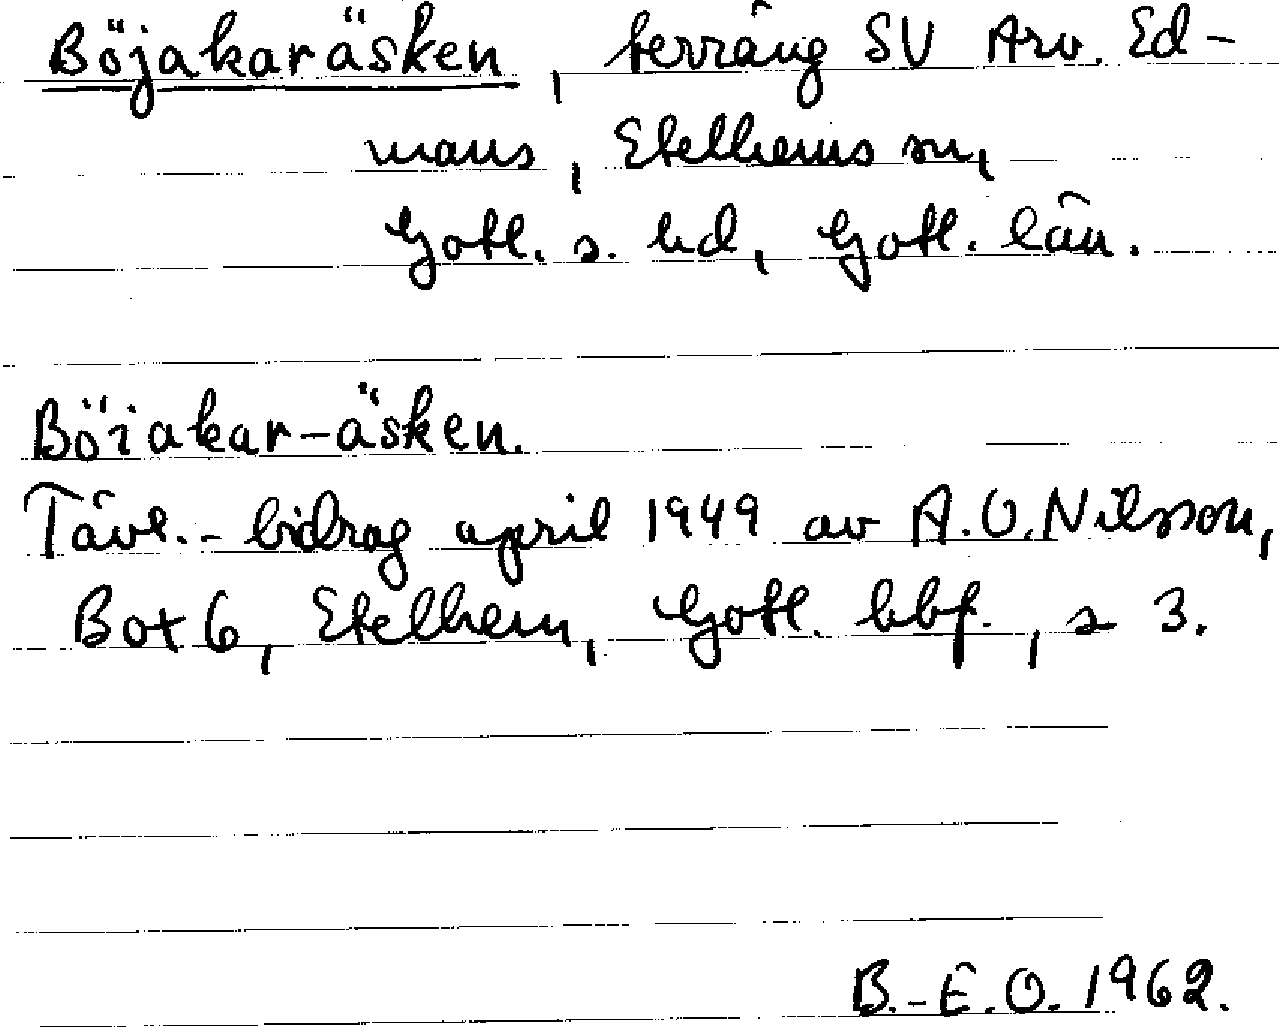 Böjakaräsken, terräng SV Arv. Ed-
mans, Etelhems sn,
Gotl. s. hd, Gotl. län.
Böiakar-äsken.
Tävl.- bidrag april 1949 av A.O. Nilsson,
Box 6, Etelhem, Gotl. hbf., s 3.
B.-E.O. 1962.